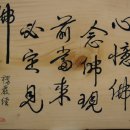 心憶佛
念佛現
前當來
必定見
佛
楞嚴經